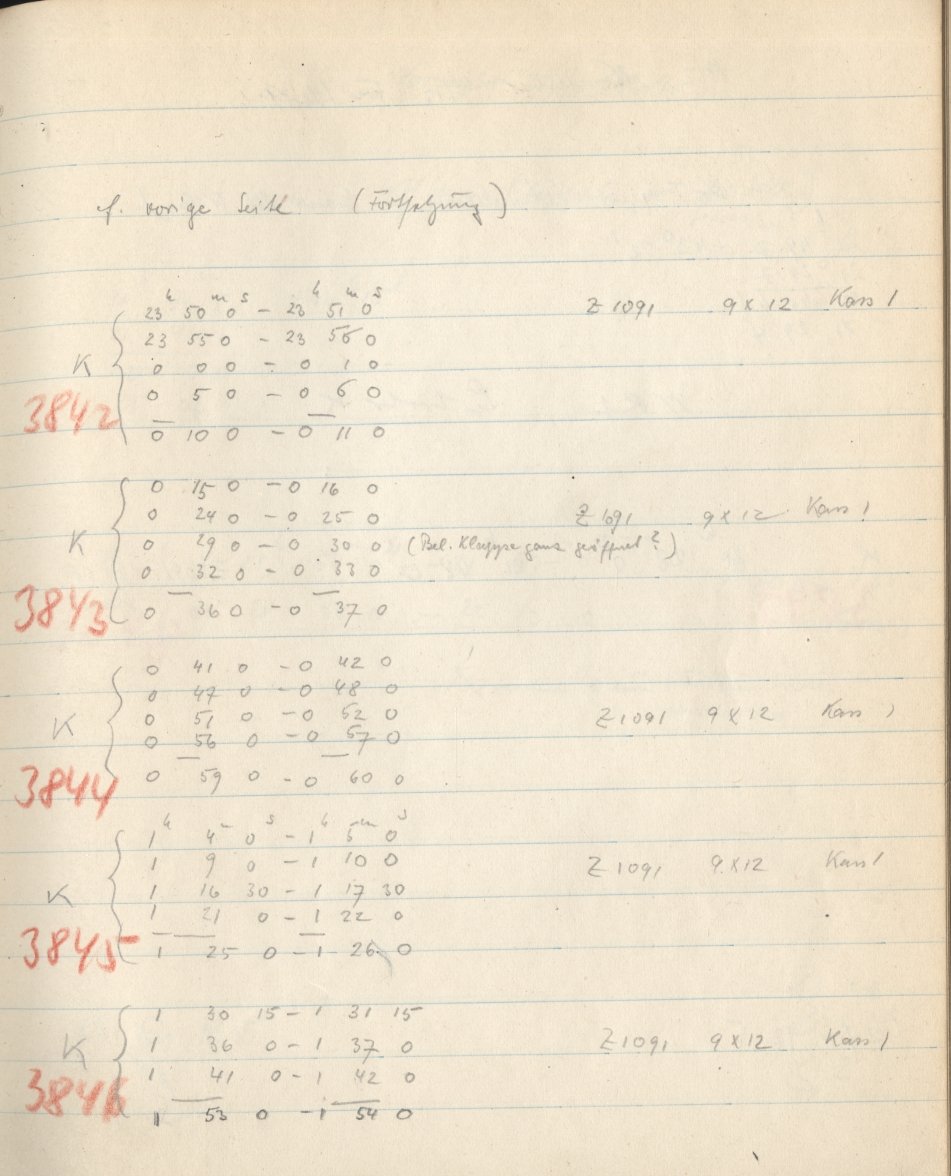 cf. vorige Seite (Fortsetzung)
23h 50m 0s – 23h 51m 0s Z 1091 9 x 12 Kass 1
23 55 0 – 23 56 0
K 0 0 0 – 0 1 0
3842 0 5 0 – 0 6 0
0 10 0 – 0 11 0
0 15 0 – 0 16 0
0 24 0 – 0 25 0 Z 1091 9 x 12 Kass 1
K 0 29 0 – 0 30 0 (Bel. Klappe ganz geöffnet?)
0 32 0 – 0 33 0
3843 0 36 0 – 0 37 0
0 41 0 – 0 42 0
0 47 0 – 0 48 0
K 0 51 0 – 0 52 0 Z 1091 9 x 12 Kass 1
0 56 0 – 0 57 0
3844 0 59 0 – 0 60 0
1h 4m 0s – 1h 5m 0s
1 9 0 – 1 10 0 Z 1091 9 x 12 Kass 1
K 1 16 30 – 1 17 30
1 21 0 – 1 22 0
3845 1 25 0 – 1 26 0
1 30 15 – 1 31 15
K 1 36 0 – 1 37 0 Z 1091 9 x 12 Kass 1
3846 1 41 0 – 1 42 0
1 53 0 – 1 54 0